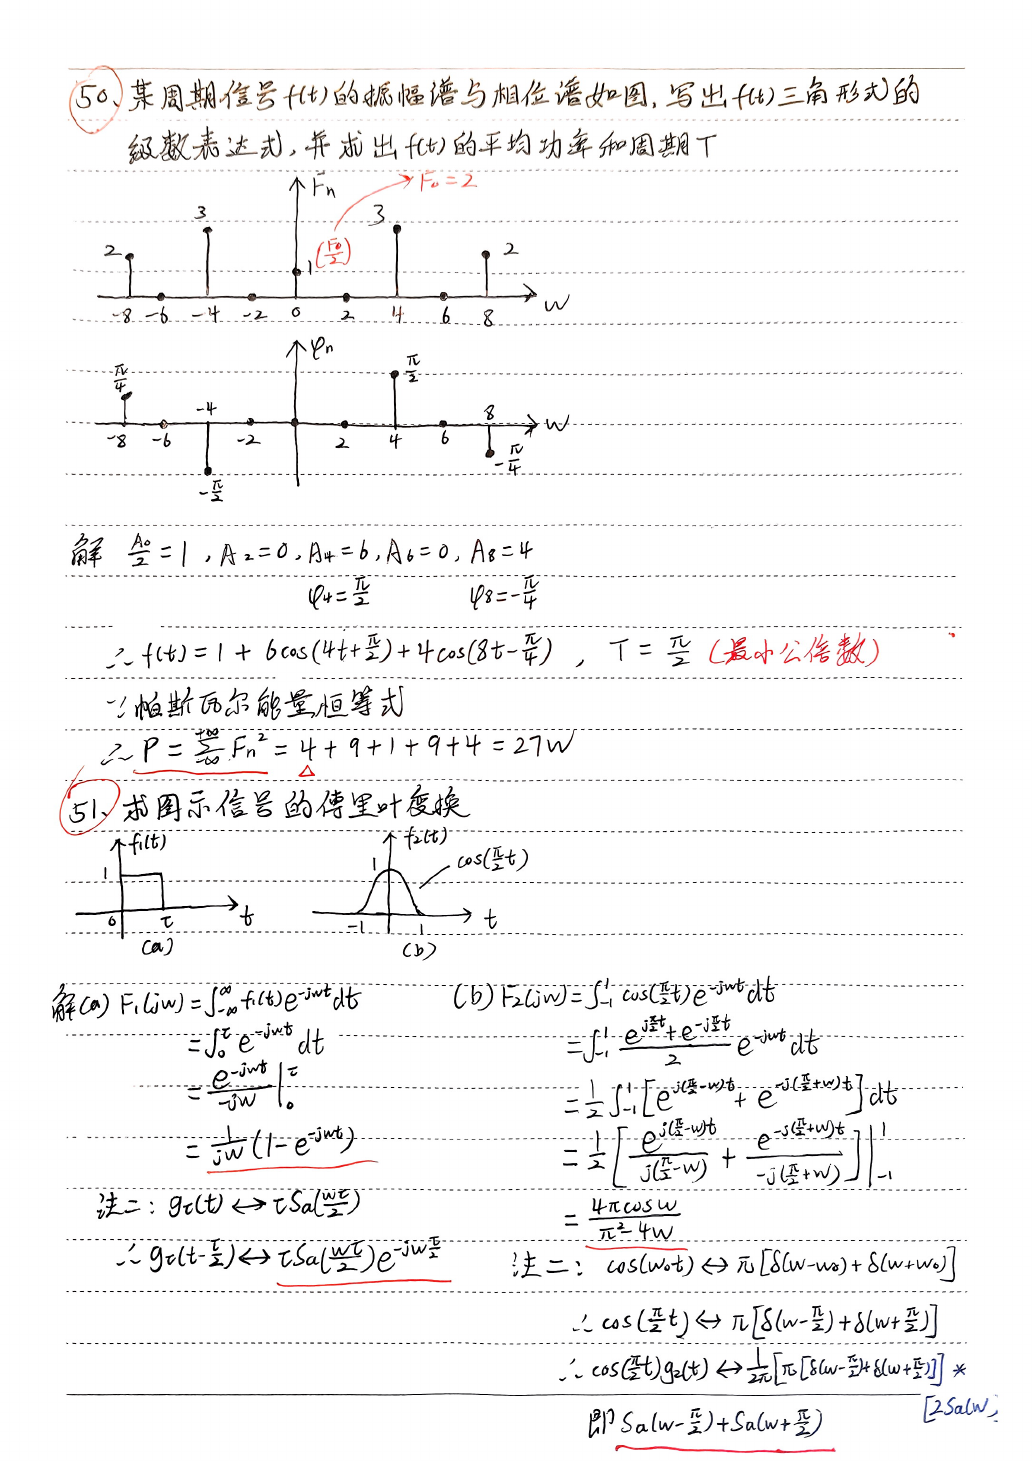 50、某周期信号f(t)的振幅谱与相位谱如图,写出f(t)三角形式的
级数表达式,并求出f(t)的平均功率和周期T
Fn
F₀=2
3
3
2
(F₀/2)
2
1
-8 -6 -4 -2 0 2 4 6 8 W
φn
π/4
π/2
-4
8
-8 -6 -2 2 4 6 W
-π/4
-π/2
解 A₀/2=1, A₂=0, A₄=6, A₆=0, A₈=4
φ₄=π/2 φ₈=-π/4
∴ f(t)=1+6cos(4t+π/2)+4cos(8t-π/4), T=π/2 (最小公倍数)
∵帕斯瓦尔能量恒等式
∴ P=∑_{-∞}^{+∞} Fn²=4+9+1+9+4=27W
△
51、求图示信号的傅里叶变换
f₁(t)
f₂(t)
1
1
cos(π/2 t)
0 τ t
-1 1 t
(a)
(b)
解(a) F₁(jw)=∫_{-∞}^{∞} f₁(t)e^{-jwt}dt
=∫₀^τ e^{-jwt}dt
=e^{-jwt}/-jw |₀^τ
=1/jw (1-e^{-jwτ})
注二: gτ(t)↔τSa(wτ/2)
∴ gτ(t-τ/2)↔τSa(wτ/2)e^{-jwτ/2}
(b) F₂(jw)=∫_{-1}^{1} cos(π/2 t)e^{-jwt}dt
=∫_{-1}^{1} (e^{jπ/2 t}+e^{-jπ/2 t})/2 e^{-jwt}dt
=1/2 ∫_{-1}^{1} [e^{j(π/2-w)t}+e^{-j(π/2+w)t}]dt
=1/2 [e^{j(π/2-w)t}/j(π/2-w) + e^{-j(π/2+w)t}/-j(π/2+w)] |_{-1}^{1}
=4πcosw/π²-4w
注二: cos(w₀t)↔π[δ(w-w₀)+δ(w+w₀)]
∴ cos(π/2 t)↔π[δ(w-π/2)+δ(w+π/2)]
∴ cos(π/2 t)g₂(t)↔1/2π[π[δ(w-π/2)+δ(w+π/2)]] *
[2Sa(w)
即 Sa(w-π/2)+Sa(w+π/2)